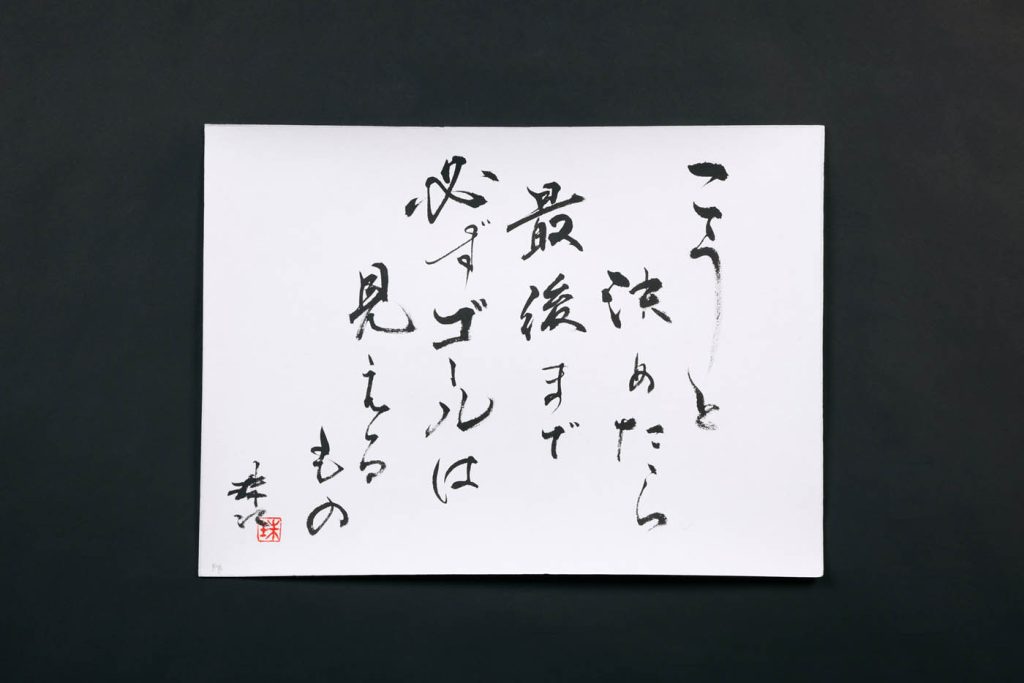 こうと
決めたら
最後まで
必ずゴールは
見える
もの
珠